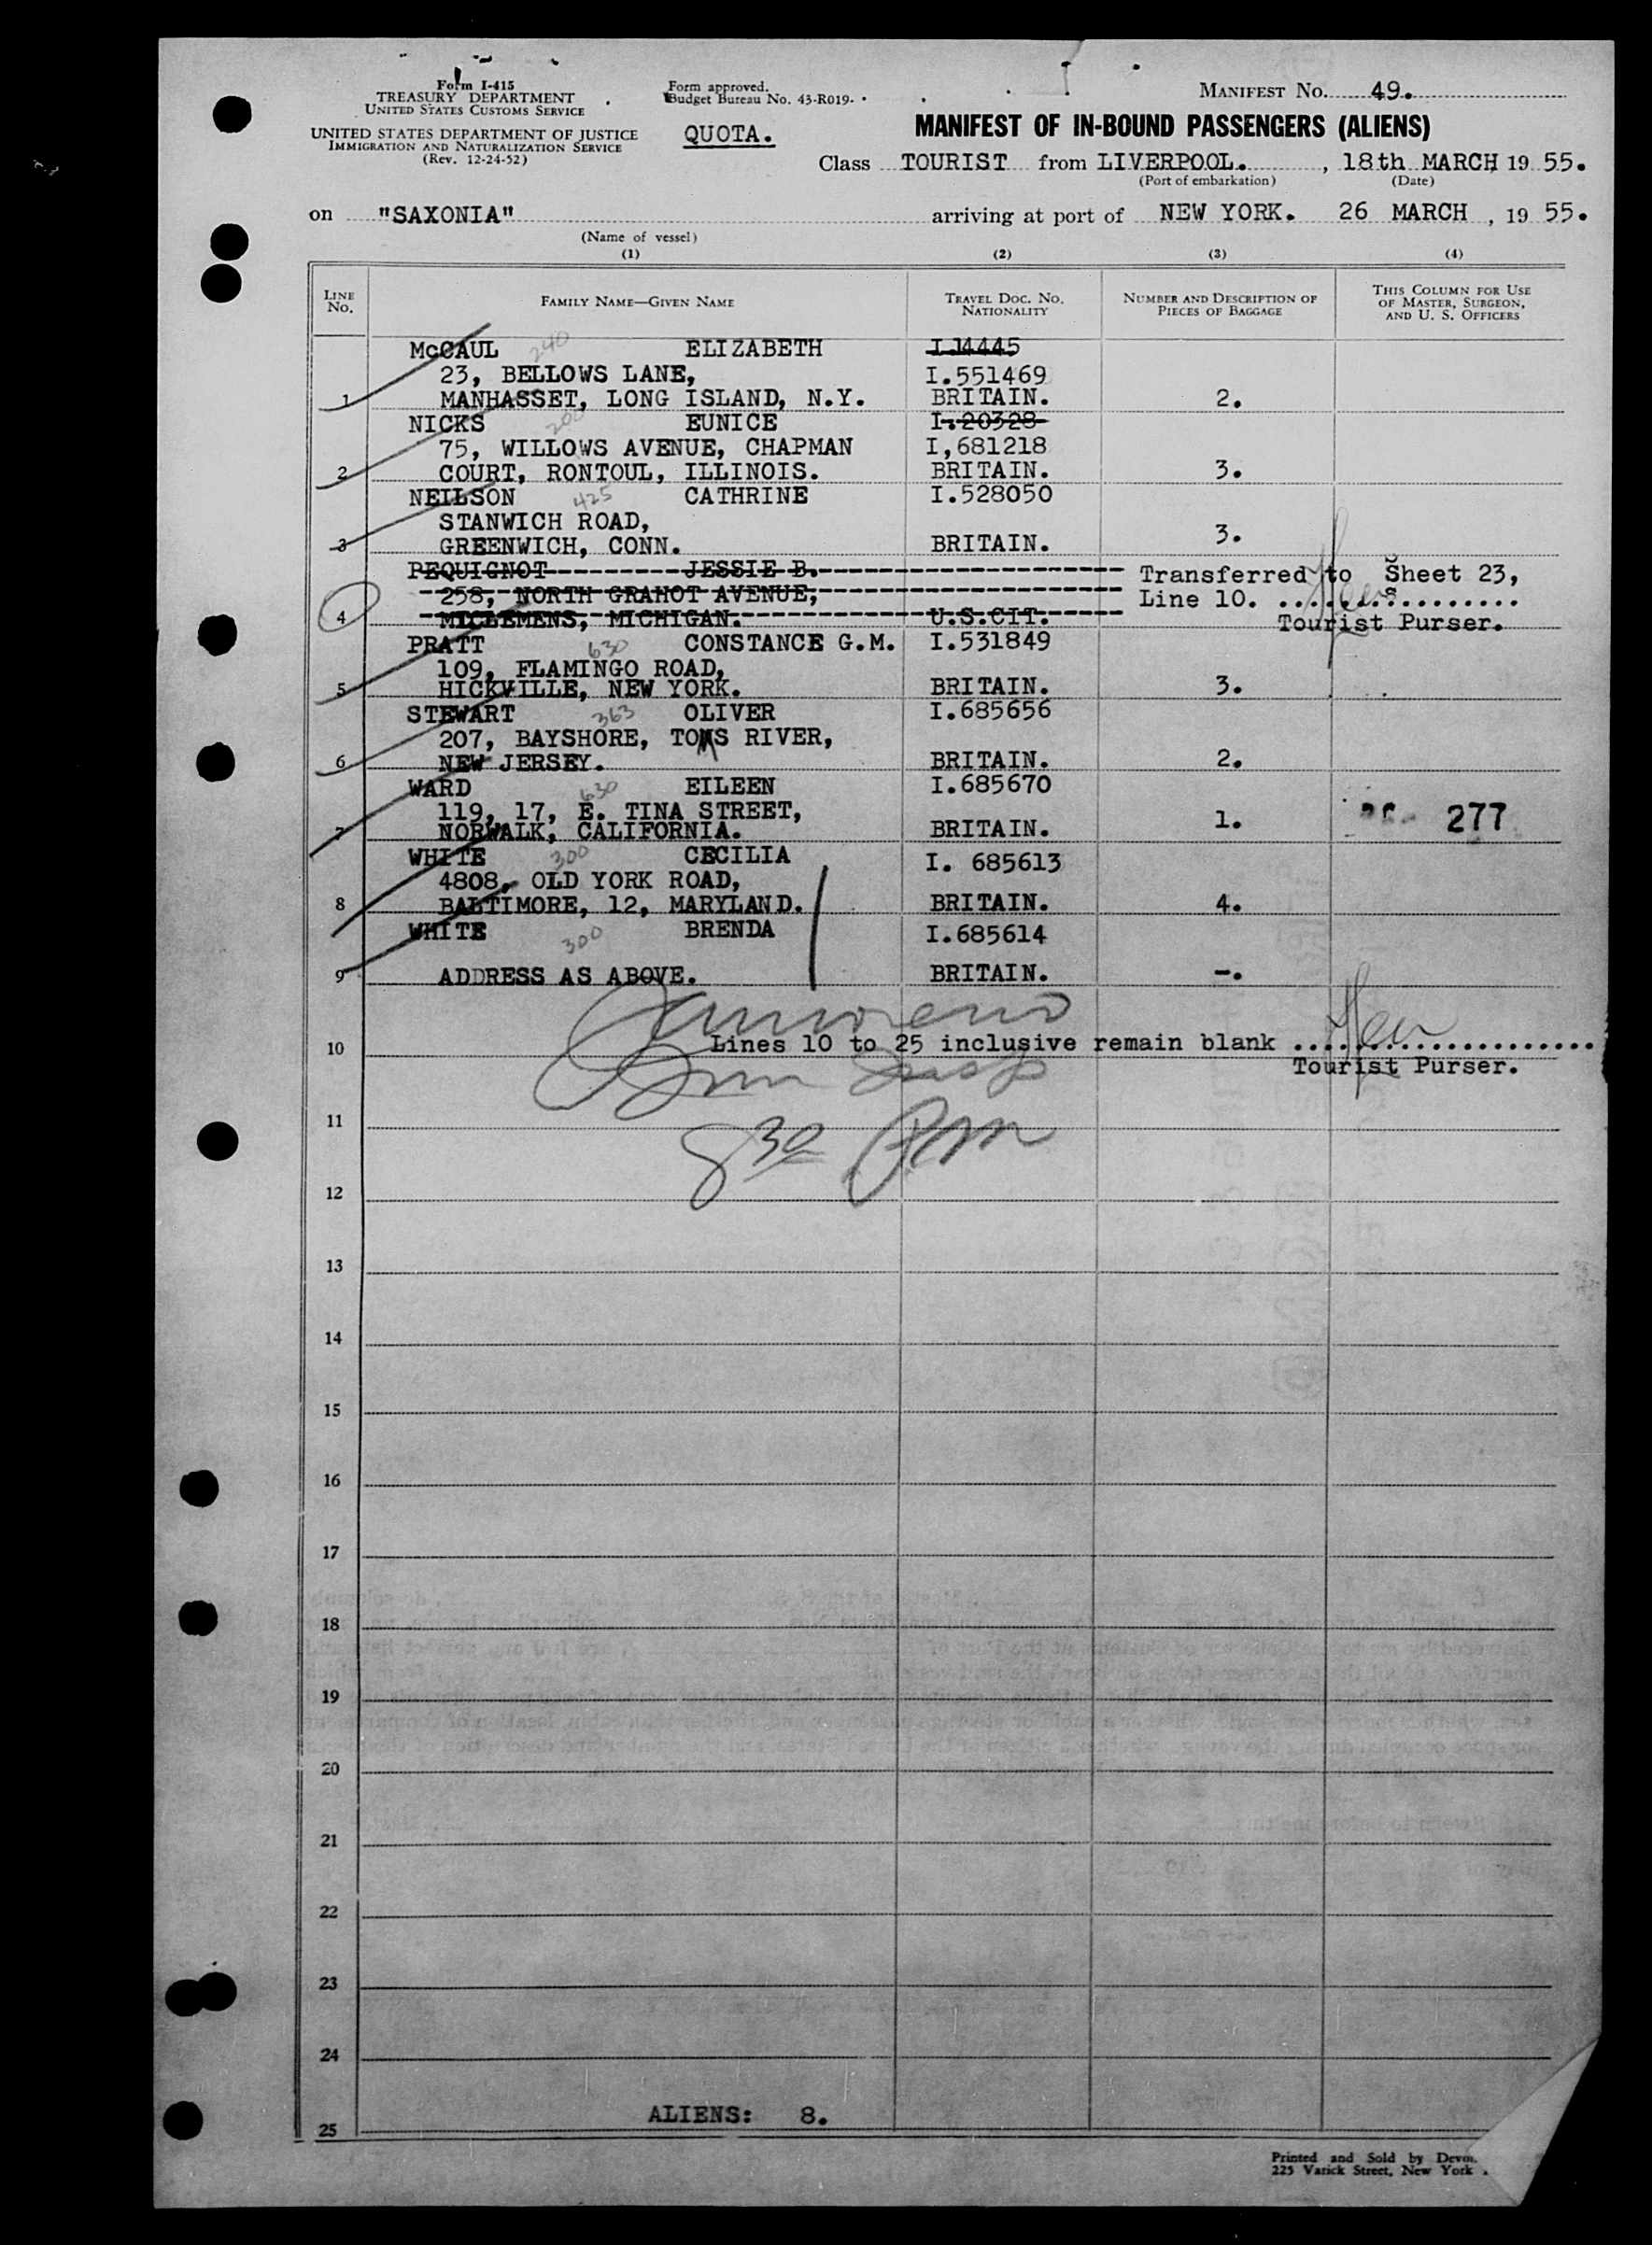 Form I-415
TREASURY DEPARTMENT
UNITED STATES CUSTOMS SERVICE
UNITED STATES DEPARTMENT OF JUSTICE
IMMIGRATION AND NATURALIZATION SERVICE
(Rev. 12-24-52)
Form approved.
Budget Bureau No. 43-R019-
QUOTA.
MANIFEST NO. 49.
MANIFEST OF IN-BOUND PASSENGERS (ALIENS)
Class TOURIST from LIVERPOOL. , 18th MARCH, 19 55.
(Port of embarkation) (Date)
on "SAXONIA" arriving at port of NEW YORK. 26 MARCH , 19 55.
(Name of vessel)
(1) (2) (3) (4)
LINE NO. FAMILY NAME—GIVEN NAME TRAVEL DOC. NO. NATIONALITY NUMBER AND DESCRIPTION OF PIECES OF BAGGAGE THIS COLUMN FOR USE OF MASTER, SURGEON, AND U. S. OFFICERS
McCAUL 240 ELIZABETH I.14445
23, BELLOWS LANE, I.551469
1 MANHASSET, LONG ISLAND, N.Y. BRITAIN. 2.
NICKS 200 EUNICE I.20328
75, WILLOWS AVENUE, CHAPMAN I,681218
2 COURT, RONTOUL, ILLINOIS. BRITAIN. 3.
NEILSON 425 CATHRINE I.528050
STANWICH ROAD,
3 GREENWICH, CONN. BRITAIN. 3.
PEQUIGNOT JESSIE B. Transferred to Sheet 23,
258, NORTH GRAHOT AVENUE, Line 10. ................
4 MICLEMENS, MICHIGAN. U.S.CIT. Tourist Purser.
PRATT 630 CONSTANCE G.M. I.531849
109, FLAMINGO ROAD,
5 HICKVILLE, NEW YORK. BRITAIN. 3.
STEWART 363 OLIVER I.685656
207, BAYSHORE, TOMS RIVER,
6 NEW JERSEY. BRITAIN. 2.
WARD 630 EILEEN I.685670
119, 17, E. TINA STREET,
7 NORWALK, CALIFORNIA. BRITAIN. 1. 277
WHITE 300 CECILIA I. 685613
4808, OLD YORK ROAD,
8 BALTIMORE, 12, MARYLAND. BRITAIN. 4.
WHITE 300 BRENDA I.685614
9 ADDRESS AS ABOVE. BRITAIN. -.
10 Lines 10 to 25 inclusive remain blank ....................
Tourist Purser.
11
8 30 PM
12
13
14
15
16
17
18
19
20
21
22
23
24
ALIENS: 8.
25
Printed and Sold by
225 Varick Street, New York